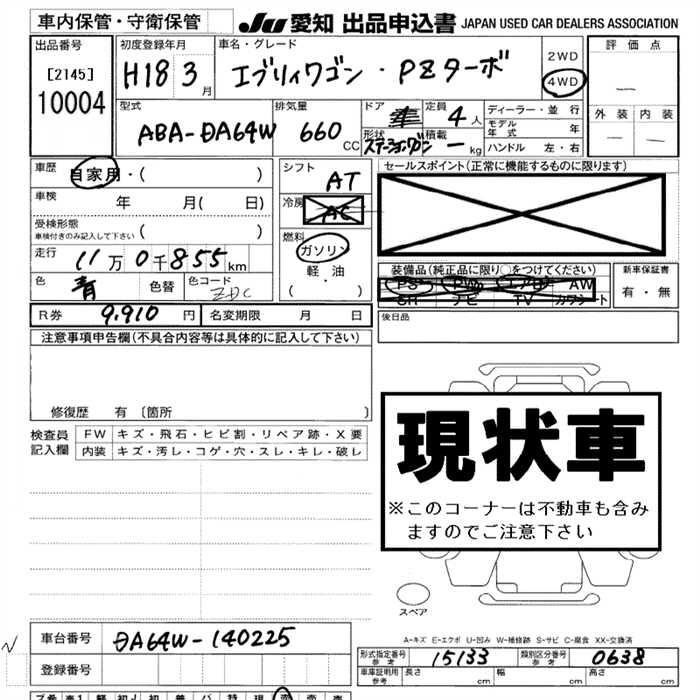 車内保管・守衛保管
JU 愛知 出品申込書 JAPAN USED CAR DEALERS ASSOCIATION
出品番号
[2145]
10004
初度登録年月
H18 3月
車名・グレード
エブリィワゴン・PZターボ
2WD
4WD
評価点
—
外装 内装
— —
型式
ABA-DA64W
排気量
660 CC
ドア
形状
ステーションワゴン
定員
4人
積載
— kg
ディーラー・並行
モデル年式 年
ハンドル 左・右
車歴
自家用・( )
車検 年 月( 日)
受検形態
車検付きのみ記入して下さい ( )
走行
11万0千855km
色
青 色替
色コード
ZJC
R券 9,910 円 名変期限 月 日
シフト
AT
冷房
AC
燃料
ガソリン
軽・油
( ・ )
セールスポイント(正常に機能するものに限ります)
装備品(純正品に限り○をつけてください)
PS PW エアB AW
SR ナビ TV カワシート
新車保証書
有・無
後日品
注意事項申告欄(不具合内容等は具体的に記入して下さい)
修復歴 有〔箇所 〕
検査員記入欄
FW キズ・飛石・ヒビ割・リペア跡・X要
内装 キズ・汚レ・コゲ・穴・スレ・キレ・破レ
現状車
※このコーナーは不動車も含み
ますのでご注意下さい
スペア
A-キズ E-エクボ U-凹み W-補修跡 S-サビ C-腐食 XX-交換済
車台番号 DA64W-140225
登録番号
形式指定番号 参考 15133 類別区分番号 参考 0638
車庫証明用 参考 長さ cm 幅 cm 高さ cm